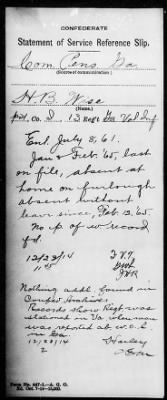 CONFEDERATE
Statement of Service Reference Slip.
Com. Pens. Ga
(Source of communication.)
H. B. Wise
(Name.)
pvt. Co. D. 13 Regt Ga Vol Inf
Enl. July 8, 61.
Jan & Feb. '65, last
on file, absent at
home on furlough
absent without
leave since, Feb. 13. '65.
No p. of w. record
fd.
12/23/14
Nothing addl. found in
Confed Archives.
Records show Regt was
stationed in Va when man
was reported a.w.o.l.
in Ga
12/23/14
2
Form No. 447-1—A. G. O.